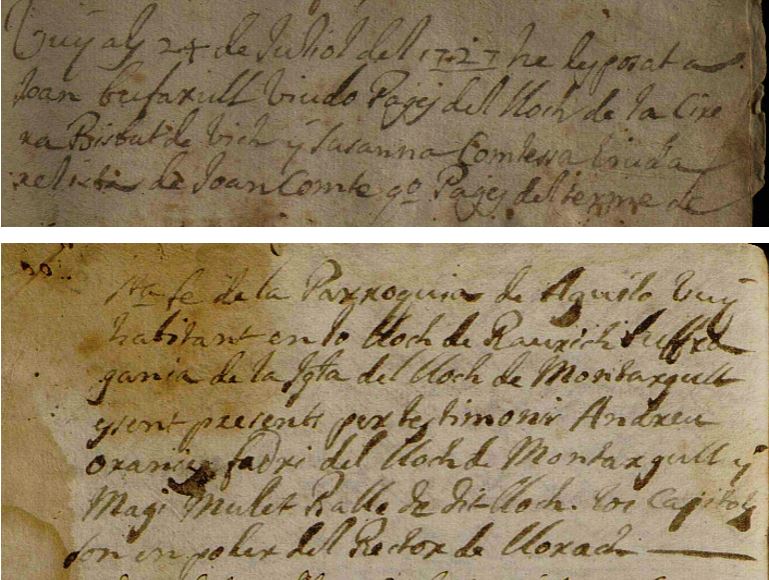 Vuy als 24 de Juliol del 1727 he esposat a
Joan bufarull Viudo Pages del lloch de la Cire
ra Bisbat de Vich y Susanna Comtessa Viuda
relicta de Joan Comte qº Pages del terme de
Sta fe de la Parroquia de Aguilo vuy
habitant en lo lloch de Raurich suffra
gania de la Igta del lloch de Montargull
essent presents per testimonis Andreu
fadri del lloch de Montargull y
Magi Mulet Balle de dit lloch. los Capitols
son en poder del Rector de Llorach